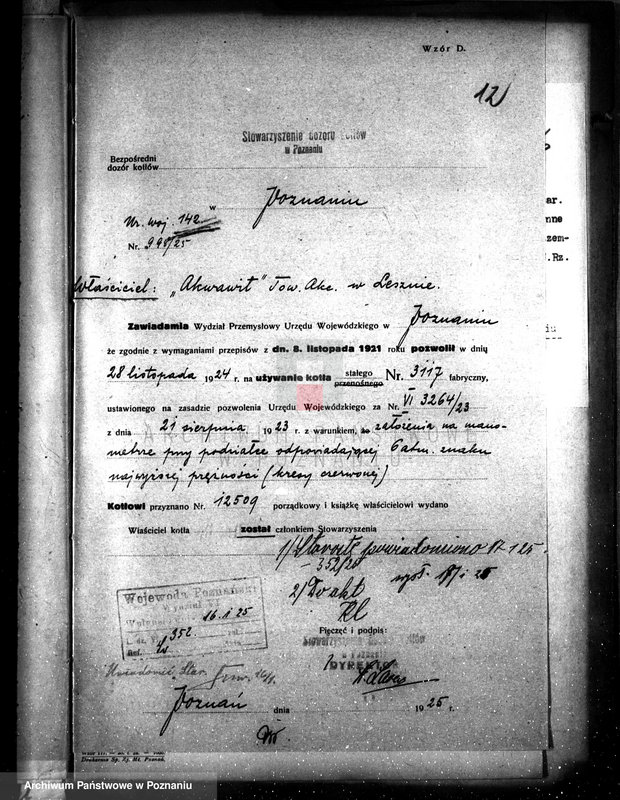 Wzór D.
12
Stowarzyszenie dozoru kotłów
w Poznaniu
Bezpośredni
dozór kotłów
w Poznaniu
Nr. woj. 142
Nr. 998/25
Właściciel: „Akwawit" Tow. Akc. w Lesznie.
Zawiadamia Wydział Przemysłowy Urzędu Wojewódzkiego w Poznaniu
że zgodnie z wymaganiami przepisów z dn. 8. listopada 1921 roku pozwolił w dniu
28 listopada 1924 r. na używanie kotła stałego przenośnego Nr. 3117 fabryczny,
ustawionego na zasadzie pozwolenia Urzędu Wojewódzkiego za Nr. VI 3264/23
z dnia 21 sierpnia 1923 r. z warunkiem, że założenia na mano-
metrze przy podziałce odpowiadającej 6 atm. znaku
najwyższej prężności (kresy czerwonej)
Kotłowi przyznano Nr. 12509 porządkowy i książkę właścicielowi wydano
Właściciel kotła został członkiem Stowarzyszenia
1) Starostę powiadomiono
352/25
2) Do akt
Wojewoda Poznański
16.1.25
352
Pieczęć i podpis:
DYREKTOR
Uwiadomić Star.
Poznań dnia 1925 r.
Drukarnia Sp. Zj. Mł. Poznań.
ar.
nne
zem-
.Rz.
iu
Archiwum Państwowe w Poznaniu